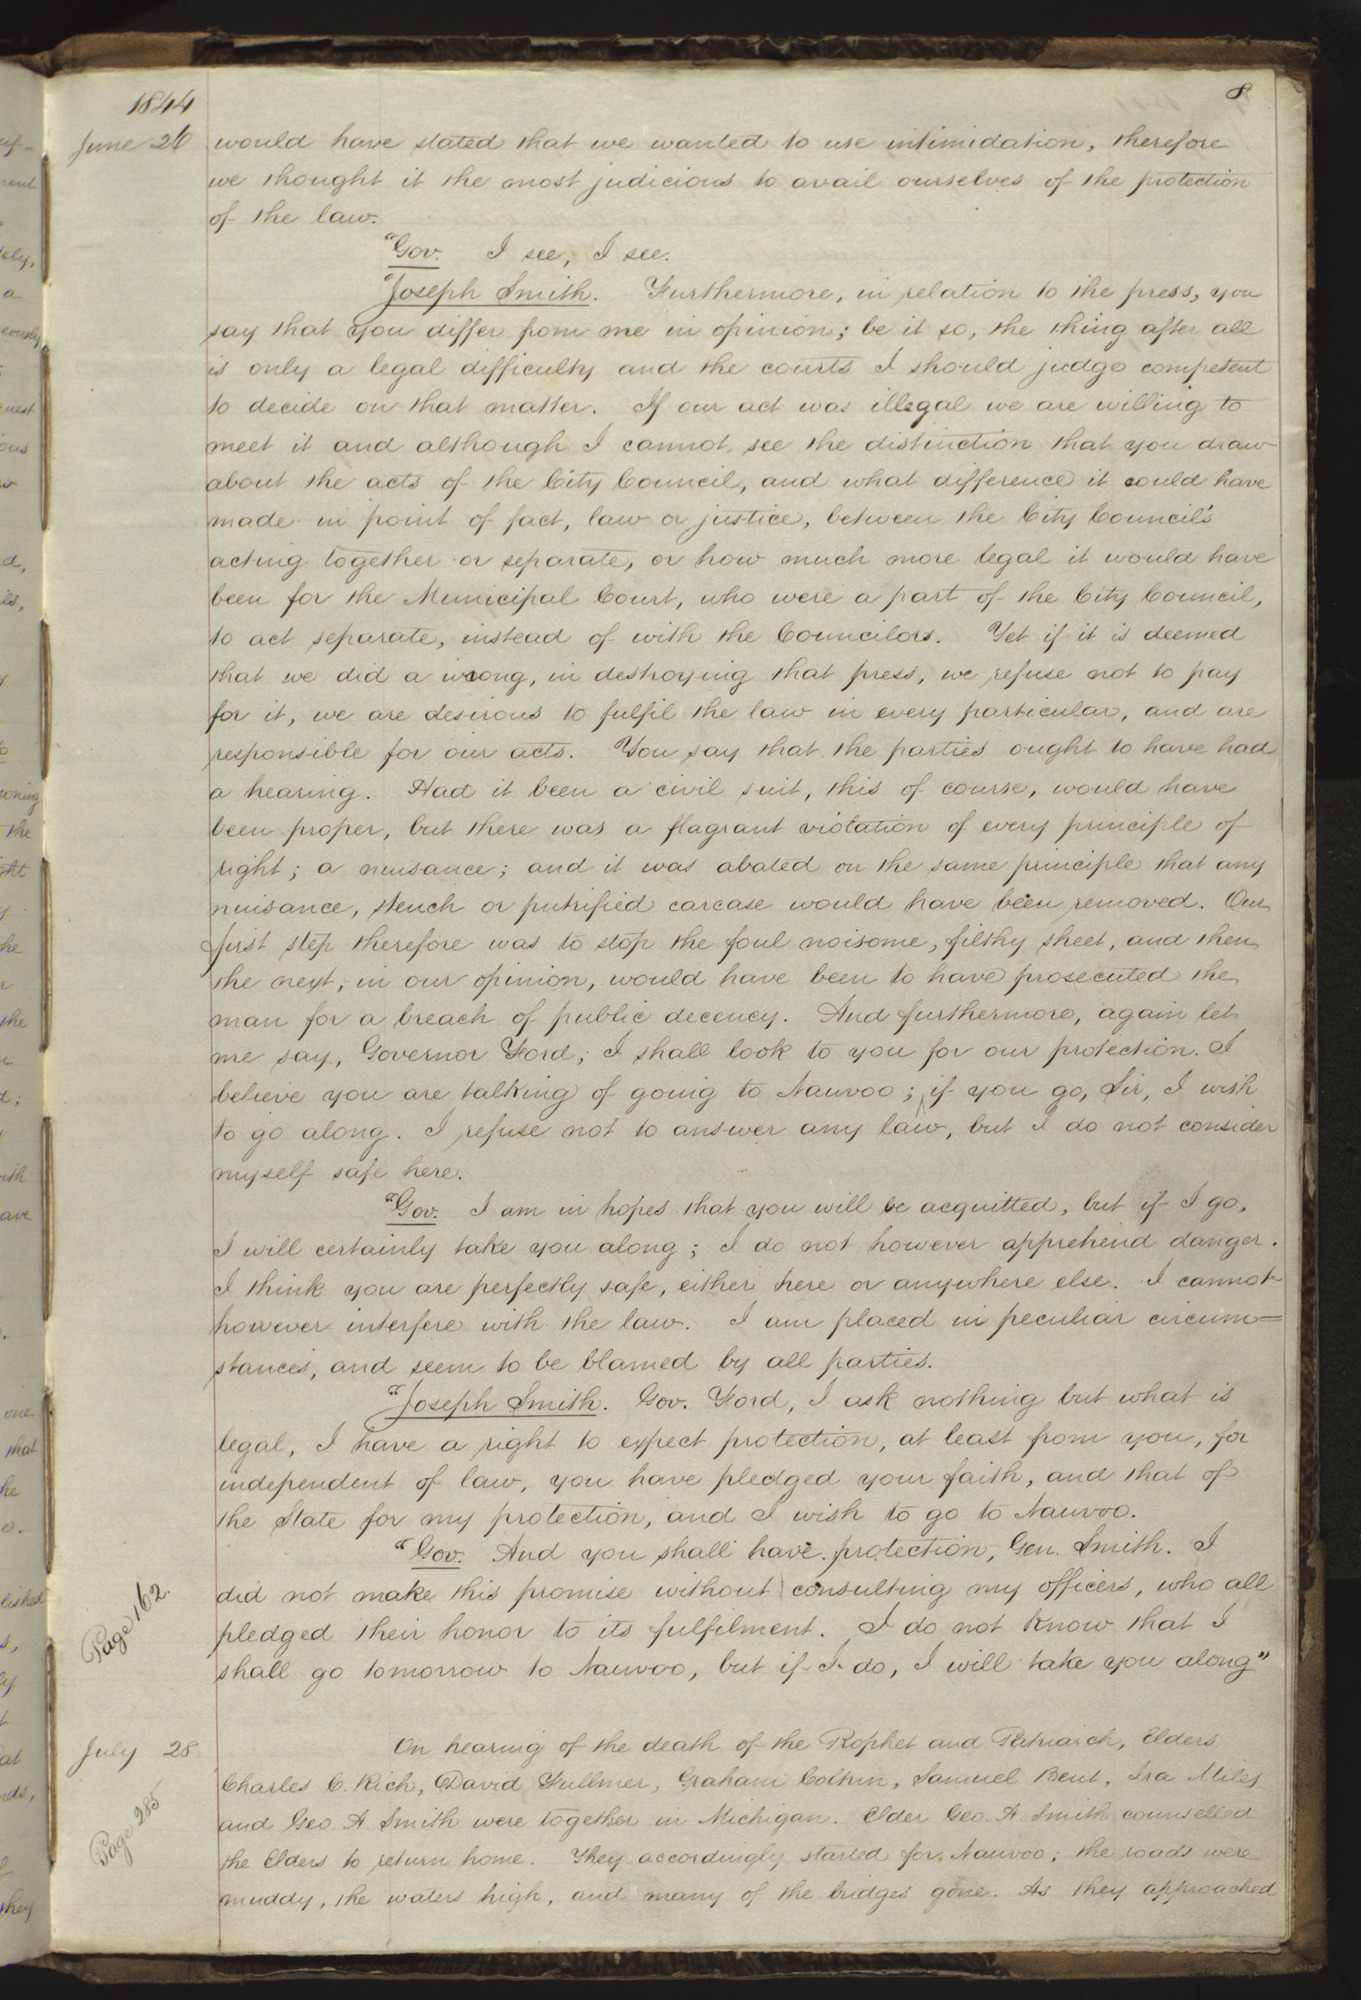 1844
8
June 26 would have stated that we wanted to use intimidation, therefore
we thought it the most judicious to avail ourselves of the protection
of the law.
"Gov. I see, I see.
"Joseph Smith. Furthermore, in relation to the press, you
say that you differ from me in opinion; be it so, the thing after all
is only a legal difficulty and the courts I should judge competent
to decide on that matter. If our act was illegal we are willing to
meet it and although I cannot see the distinction that you draw
about the acts of the City Council, and what difference it could have
made in point of fact, law or justice, between the City Council's
acting together or separate, or how much more legal it would have
been for the Municipal Court, who were a part of the City Council,
to act separate, instead of with the Councilors. Yet if it is deemed
that we did a wrong, in destroying that press, we refuse not to pay
for it, we are desirous to fulfil the law in every particular, and are
responsible for our acts. You say that the parties ought to have had
a hearing. Had it been a civil suit, this of course, would have
been proper, but there was a flagrant violation of every principle of
right; a nuisance; and it was abated on the same principle that any
nuisance, stench or putrified carcase would have been removed. Our
first step therefore was to stop the foul noisome, filthy sheet, and then
the next, in our opinion, would have been to have prosecuted the
man for a breach of public decency. And furthermore, again let
me say, Governor Ford, I shall look to you for our protection. I
believe you are talking of going to Nauvoo; if you go, Sir, I wish
to go along. I refuse not to answer any law, but I do not consider
myself safe here.
"Gov. I am in hopes that you will be acquitted, but if I go,
I will certainly take you along; I do not however apprehend danger.
I think you are perfectly safe, either here or anywhere else. I cannot
however interfere with the law. I am placed in peculiar circum=
stances, and seem to be blamed by all parties.
"Joseph Smith. Gov. Ford, I ask nothing but what is
legal, I have a right to expect protection, at least from you, for
independent of law, you have pledged your faith, and that of
the State for my protection, and I wish to go to Nauvoo.
"Gov. And you shall have protection, Gen. Smith. I
did not make this promise without consulting my officers, who all
pledged their honor to its fulfilment. I do not know that I
shall go tomorrow to Nauvoo, but if I do, I will take you along"
Page 162
July 28 On hearing of the death of the Prophet and Patriarch, Elders
Charles C. Rich, David Fullmer, Graham Coltrin, Samuel Bent, Ira Miles
and Geo. A. Smith were together in Michigan. Elder Geo. A. Smith counselled
the Elders to return home. They accordingly started for Nauvoo; the roads were
muddy, the waters high, and many of the bridges gone. As they approached
Page 285